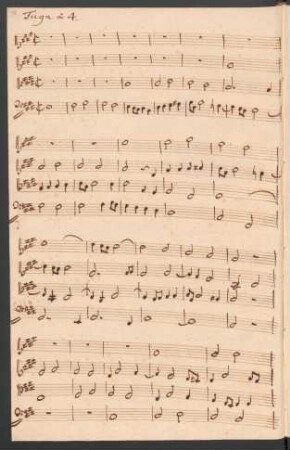 Fuga à 4.